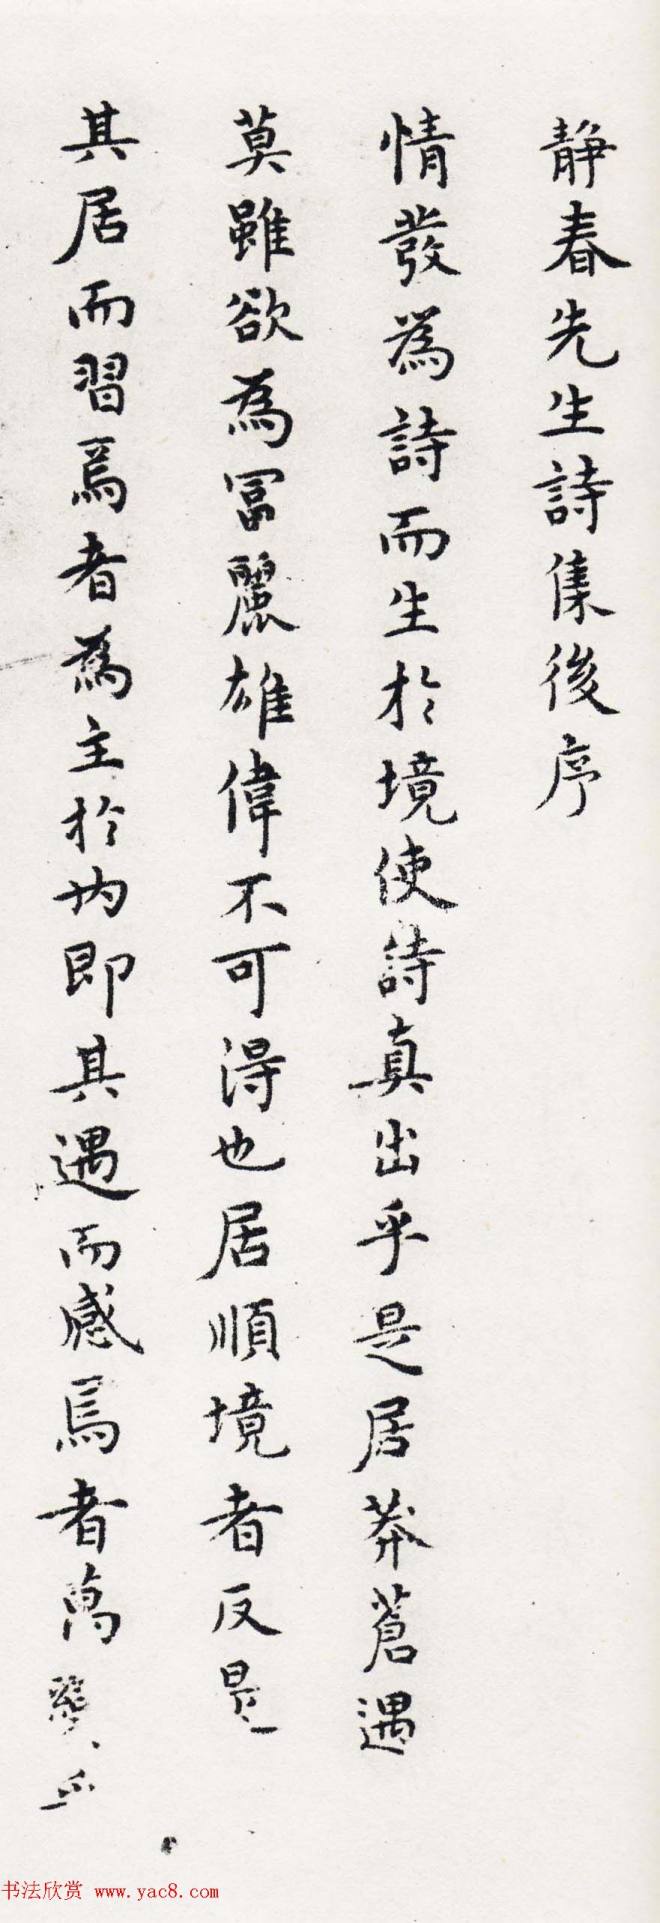 静春先生詩集後序
情發為詩而生於境使詩真出乎是居莽蒼遇
莫雖欲為冨麗雄偉不可得也居順境者反是
其居而習焉者為主於内即其遇而感焉者萬變乎
书法欣赏 www.yac8.com